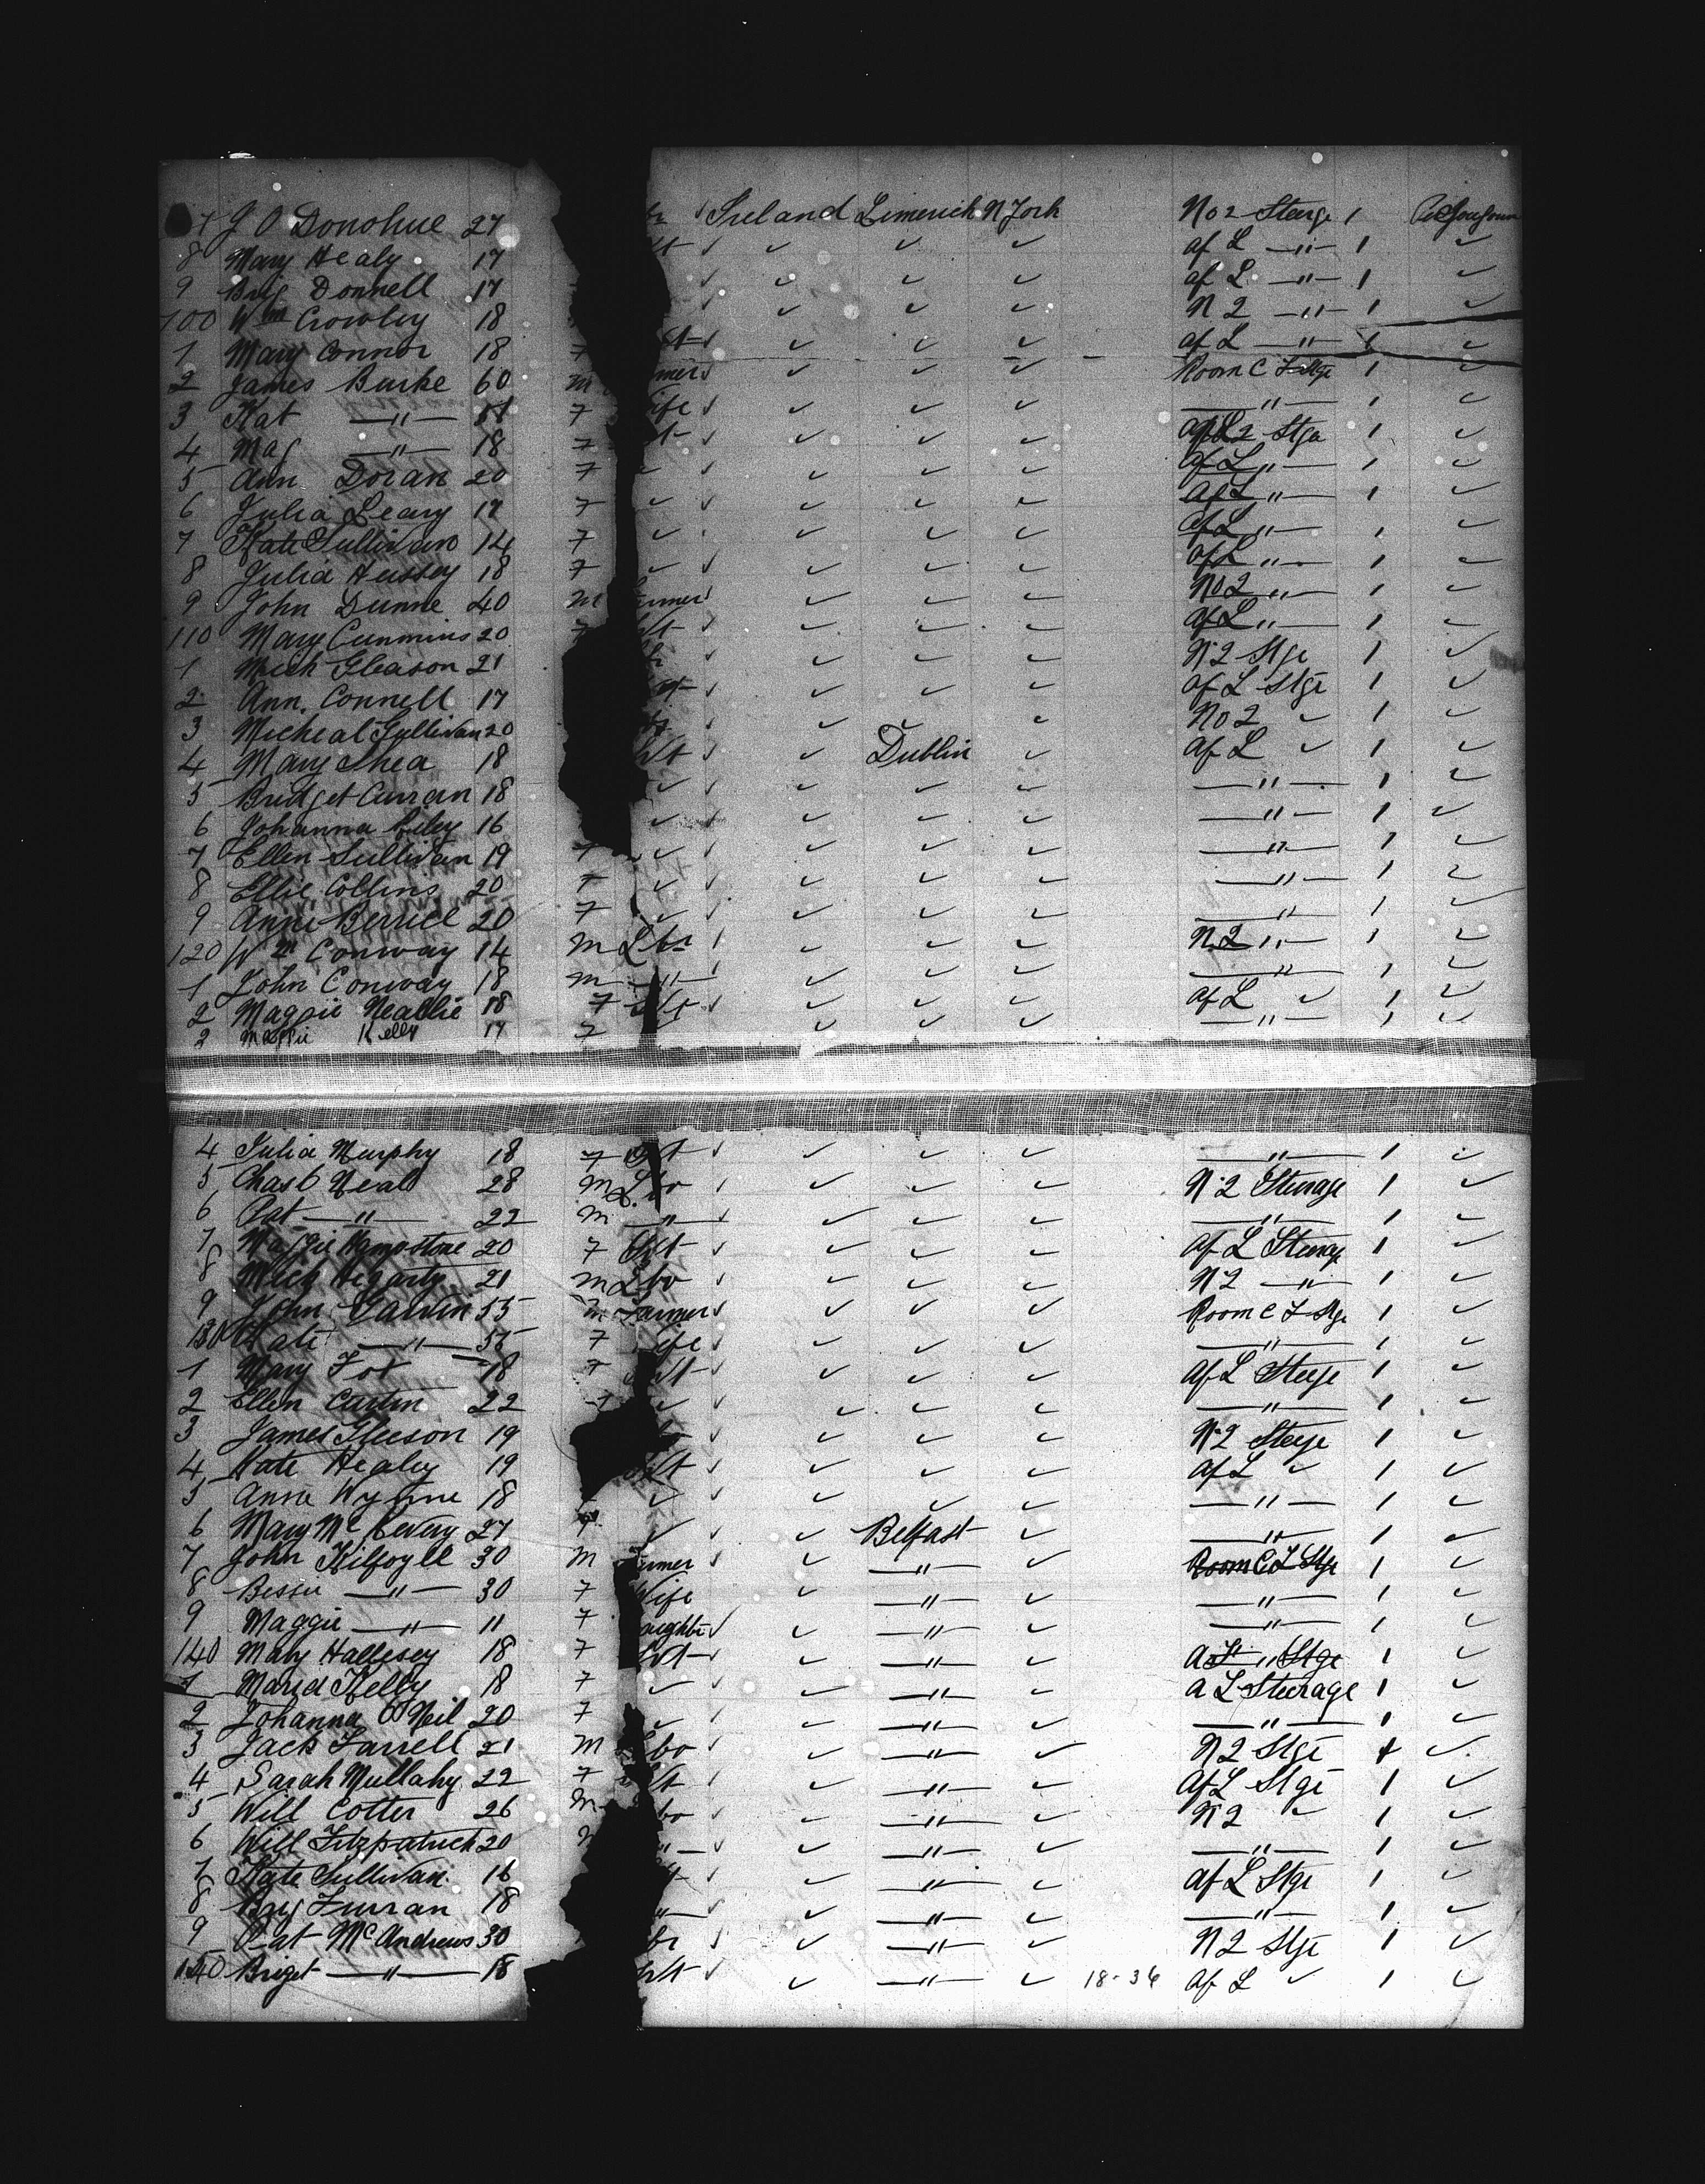 7 J O Donohue 27 Ireland Limerick N York No 2 Steerge 1
8 Mary Healy 17 ✓ ✓ ✓ af L —"— 1 ✓
9 Brig Donnell 17 ✓ ✓ ✓ af L —"— 1 ✓
100 Wm Crowley 18 ✓ ✓ ✓ N 2 —"— 1 ✓
1 Mary Connor 18 7 ✓ ✓ ✓ af L —"— 1 ✓
2 James Burke 60 m mer ✓ ✓ ✓ Room C 1 ✓
3 Kat —"— 7 ife ✓ ✓ ✓ —"— 1 ✓
4 Mag —"— 18 7 ✓ ✓ ✓ 2 Stge 1 ✓
5 Ann Doran 20 7 ✓ ✓ ✓ ✓ af L "— 1 ✓
6 Julia Leary 17 7 ✓ ✓ ✓ ✓ af L "— 1 ✓
7 Kate Sullivan 14 7 ✓ ✓ ✓ ✓ af L "— 1 ✓
8 Julia Hussey 18 7 ✓ ✓ ✓ ✓ af L "— 1 ✓
9 John Dunne 40 m armer ✓ ✓ ✓ No 2 "— 1 ✓
110 Mary Cummins 20 7 ✓ ✓ ✓ af L "— 1 ✓
1 Mich Gleason 21 ✓ ✓ ✓ N 2 Stge 1 ✓
2 Ann Connell 17 ✓ ✓ ✓ af L Stge 1 ✓
3 Micheal Sullivan 20 ✓ ✓ ✓ No 2 ✓ 1 ✓
4 Mary Shea 18 ✓ Dublin ✓ af L ✓ 1 ✓
5 Bridget Curran 18 ✓ ✓ ✓ ✓ —"— 1 ✓
6 Johanna Riley 16 ✓ ✓ ✓ ✓ —"— 1 ✓
7 Ellen Sullivan 19 7 ✓ ✓ ✓ ✓ —"— 1 ✓
8 Ellie Collins 20 7 ✓ ✓ ✓ ✓ —"— 1 ✓
9 Anne 20 7 ✓ ✓ ✓ ✓ —"— 1 ✓
120 Wm Conway 14 m Lbr ✓ ✓ ✓ N 2 "— 1 ✓
1 John Conway 18 m —"— ✓ ✓ ✓ —"— 1 ✓
2 Maggie 18 7 ✓ ✓ ✓ af L ✓ 1 ✓
3 Maggie Kelly 17 7 ✓ ✓ ✓ —"— 1 ✓
4 Julia Murphy 18 7 ✓ ✓ ✓ —"— 1 ✓
5 Neal 28 m Lbr ✓ ✓ ✓ N 2 Steerage 1 ✓
6 Pat —"— 22 m —"— ✓ ✓ ✓ —"— 1 ✓
7 Maggie 20 7 ✓ ✓ ✓ af L Steerage 1 ✓
8 Mick Hegarty 21 m Lbr ✓ ✓ ✓ N 2 —"— 1 ✓
9 John 55 m Farmer ✓ ✓ ✓ Room C L Stge 1 ✓
130 Kate —"— 55 7 ife ✓ ✓ ✓ —"— 1 ✓
1 Mary Fox 18 7 ✓ ✓ ✓ af L Steege 1 ✓
2 Ellen Curtin 22 7 ✓ ✓ ✓ ✓ —"— 1 ✓
3 James Gleeson 19 ✓ ✓ ✓ N 2 Steege 1 ✓
4 Kate Healey 19 ✓ ✓ ✓ af L ✓ 1 ✓
5 Anna Wynne 18 ✓ ✓ ✓ ✓ —"— 1 ✓
6 Mary Mc 27 7 ✓ ✓ Belfast ✓ —"— 1 ✓
7 John Kilfoyll 30 m armer ✓ —"— ✓ Room C L Stge 1 ✓
8 Bessie —"— 30 7 Wife ✓ —"— ✓ —"— 1 ✓
9 Maggie —"— 11 7 aughtr ✓ —"— ✓ —"— 1 ✓
140 Mary Hallesey 18 7 ✓ —"— ✓ a L Stge 1 ✓
1 Maria Kelly 18 7 ✓ ✓ —"— ✓ a L Steerage 1 ✓
2 Johanna O Neil 20 7 ✓ ✓ —"— ✓ —"— 1 ✓
3 Jack Farrell 21 m ✓ —"— ✓ N 2 Stge 1 ✓
4 Sarah Mullahy 22 7 ✓ —"— ✓ Af L Stge 1 ✓
5 Will Cotter 26 m ✓ —"— ✓ N 2 ✓ 1 ✓
6 Will Fitzpatrick 20 ✓ —"— ✓ —"— 1 ✓
7 Kate Sullivan 16 ✓ —"— ✓ af L Stge 1 ✓
8 Brig Furran 18 ✓ —"— ✓ —"— 1 ✓
9 Pat McAndrews 30 ✓ —"— ✓ N 2 Stge 1 ✓
Briget —"— 18 ✓ —"— ✓ 18-36 af L ✓ 1 ✓